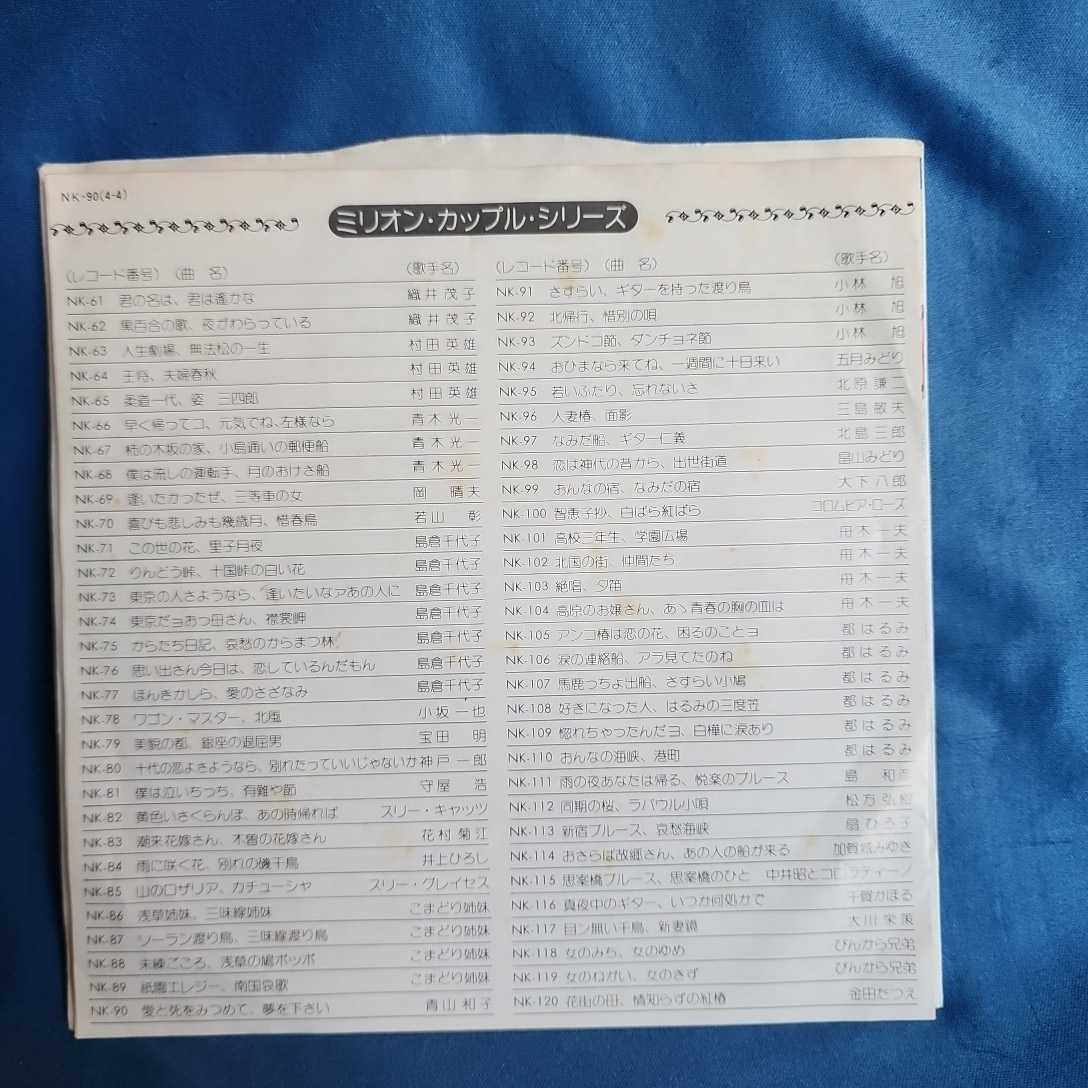 NK-90(4-4)
ミリオン・カップル・シリーズ
(レコード番号) (曲 名) (歌手名)
NK-61 君の名は、君は遙かな 織井茂子
NK-62 黒百合の歌、夜がわらっている 織井茂子
NK-63 人生劇場、無法松の一生 村田英雄
NK-64 王将、夫婦春秋 村田英雄
NK-65 柔道一代、姿 三四郎 村田英雄
NK-66 早く帰ってコ、元気でね、左様なら 青木光一
NK-67 柿の木坂の家、小島通いの郵便船 青木光一
NK-68 僕は流しの運転手、月のおけさ船 青木光一
NK-69 逢いたかったぜ、三等車の女 岡 晴夫
NK-70 喜びも悲しみも幾歳月、惜春鳥 若山 彰
NK-71 この世の花、里子月夜 島倉千代子
NK-72 りんどう峠、十国峠の白い花 島倉千代子
NK-73 東京の人さようなら、逢いたいなァあの人に 島倉千代子
NK-74 東京だョおっ母さん、襟裳岬 島倉千代子
NK-75 からたち日記、哀愁のからまつ林 島倉千代子
NK-76 思い出さん今日は、恋しているんだもん 島倉千代子
NK-77 ほんきかしら、愛のさざなみ 島倉千代子
NK-78 ワゴン・マスター、北風 小坂一也
NK-79 美貌の都、銀座の退屈男 宝田 明
NK-80 十代の恋よさようなら、別れたっていいじゃないか 神戸一郎
NK-81 僕は泣いちっち、有難や節 守屋 浩
NK-82 黄色いさくらんぼ、あの時帰れば スリー・キャッツ
NK-83 潮来花嫁さん、木曽の花嫁さん 花村菊江
NK-84 雨に咲く花、別れの磯千鳥 井上ひろし
NK-85 山のロザリア、カチューシャ スリー・グレイセス
NK-86 浅草姉妹、三味線姉妹 こまどり姉妹
NK-87 ソーラン渡り鳥、三味線渡り鳥 こまどり姉妹
NK-88 未練ごころ、浅草の鳩ポッポ こまどり姉妹
NK-89 祇園エレジー、南国哀歌 こまどり姉妹
NK-90 愛と死をみつめて、夢を下さい 青山和子
(レコード番号) (曲 名) (歌手名)
NK-91 さすらい、ギターを持った渡り鳥 小林 旭
NK-92 北帰行、惜別の唄 小林 旭
NK-93 ズンドコ節、ダンチョネ節 小林 旭
NK-94 おひまなら来てね、一週間に十日来い 五月みどり
NK-95 若いふたり、忘れないさ 北原謙二
NK-96 人妻椿、面影 三島敏夫
NK-97 なみだ船、ギター仁義 北島三郎
NK-98 恋は神代の昔から、出世街道 畠山みどり
NK-99 おんなの宿、なみだの宿 大下八郎
NK-100 智恵子抄、白ばら紅ばら コロムビア・ローズ
NK-101 高校三年生、学園広場 舟木一夫
NK-102 北国の街、仲間たち 舟木一夫
NK-103 絶唱、夕笛 舟木一夫
NK-104 高原のお嬢さん、あゝ青春の胸の血は 舟木一夫
NK-105 アンコ椿は恋の花、困るのことヨ 都はるみ
NK-106 涙の連絡船、アラ見てたのね 都はるみ
NK-107 馬鹿っちょ出船、さすらい小鳩 都はるみ
NK-108 好きになった人、はるみの三度笠 都はるみ
NK-109 惚れちゃったんだヨ、白樺に涙あり 都はるみ
NK-110 おんなの海峡、港町 都はるみ
NK-111 雨の夜あなたは帰る、悦楽のブルース 島 和彦
NK-112 同期の桜、ラバウル小唄 松方弘樹
NK-113 新宿ブルース、哀愁海峡 扇ひろ子
NK-114 おさらば故郷さん、あの人の船が来る 加賀城みゆき
NK-115 思案橋ブルース、思案橋のひと 中井昭とコロラティーノ
NK-116 真夜中のギター、いつか何処かで 千賀かほる
NK-117 目ン無い千鳥、新妻鏡 大川栄策
NK-118 女のみち、女のゆめ ぴんから兄弟
NK-119 女のねがい、女のきず ぴんから兄弟
NK-120 花街の母、情知らずの紅椿 金田たつえ